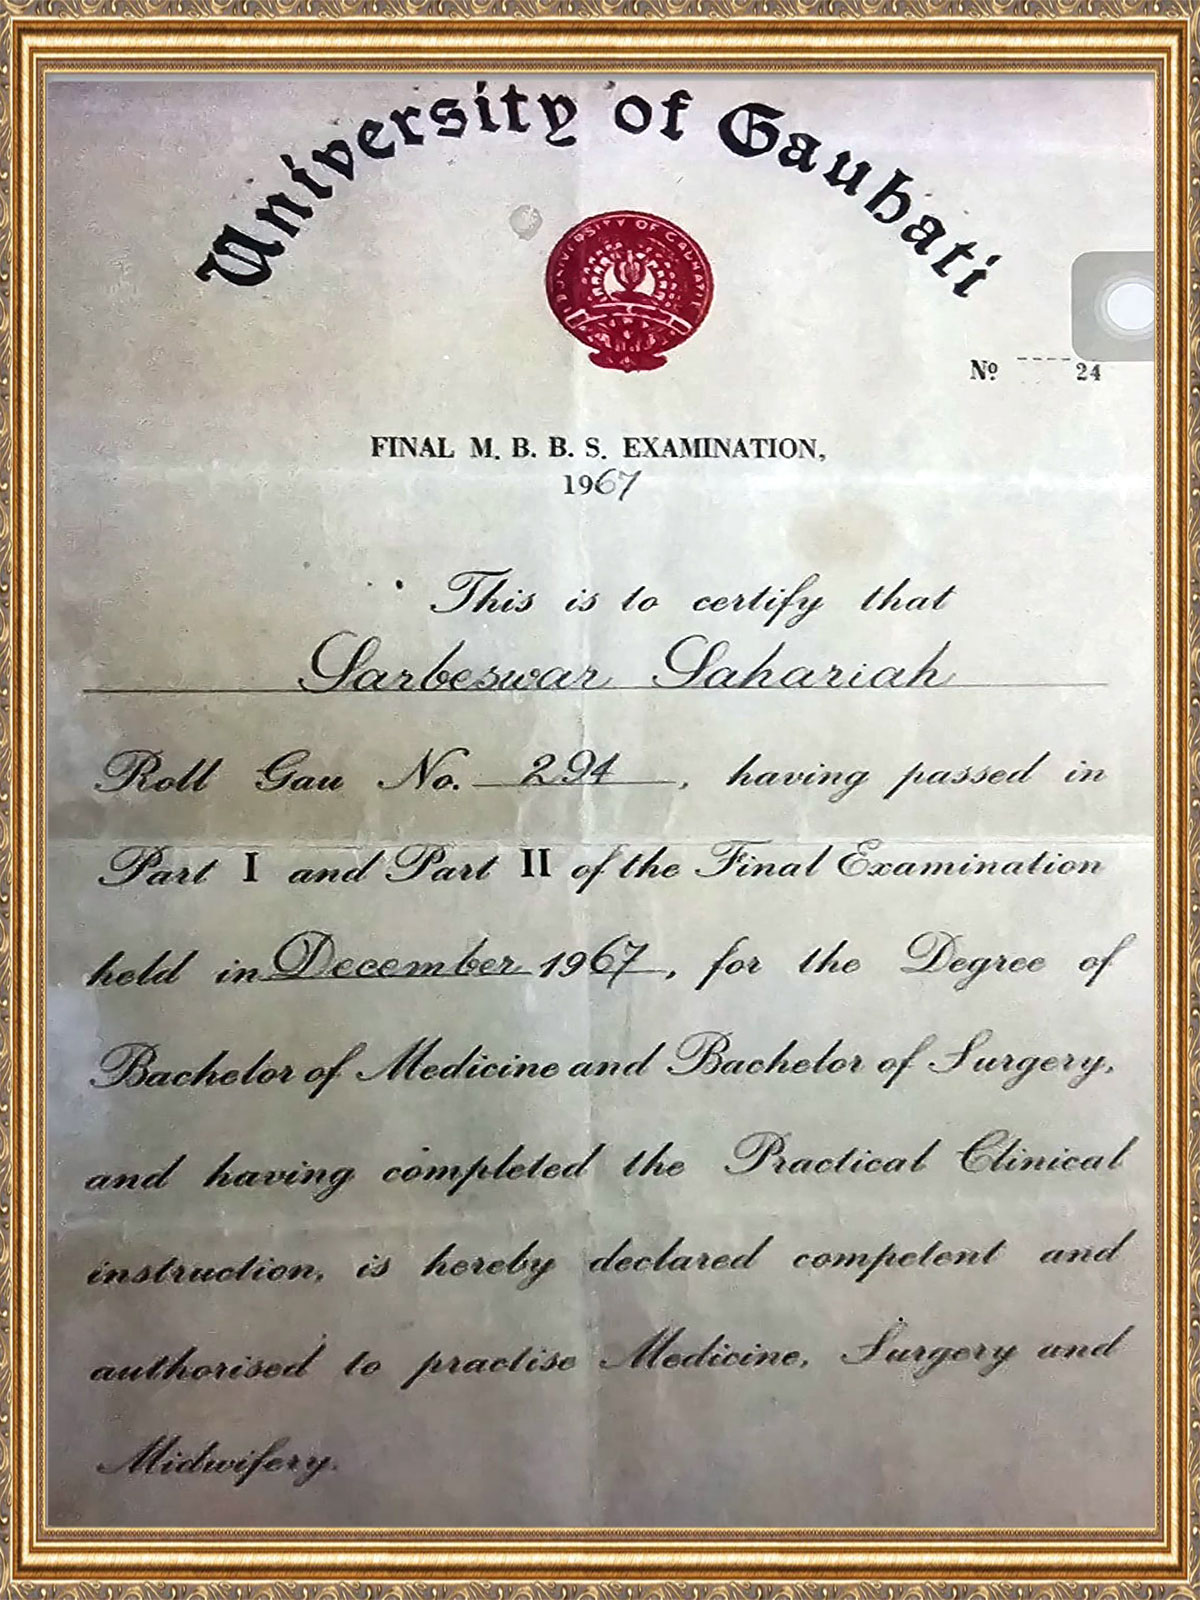 University of Gauhati
UNIVERSITY OF GAUHATI
Nº 24
FINAL M. B. B. S. EXAMINATION,
1967
This is to certify that
Sarbeswar Sahariah
Roll Gau No. 294, having passed in
Part I and Part II of the Final Examination
held in December 1967, for the Degree of
Bachelor of Medicine and Bachelor of Surgery,
and having completed the Practical Clinical
instruction, is hereby declared competent and
authorised to practise Medicine, Surgery and
Midwifery.